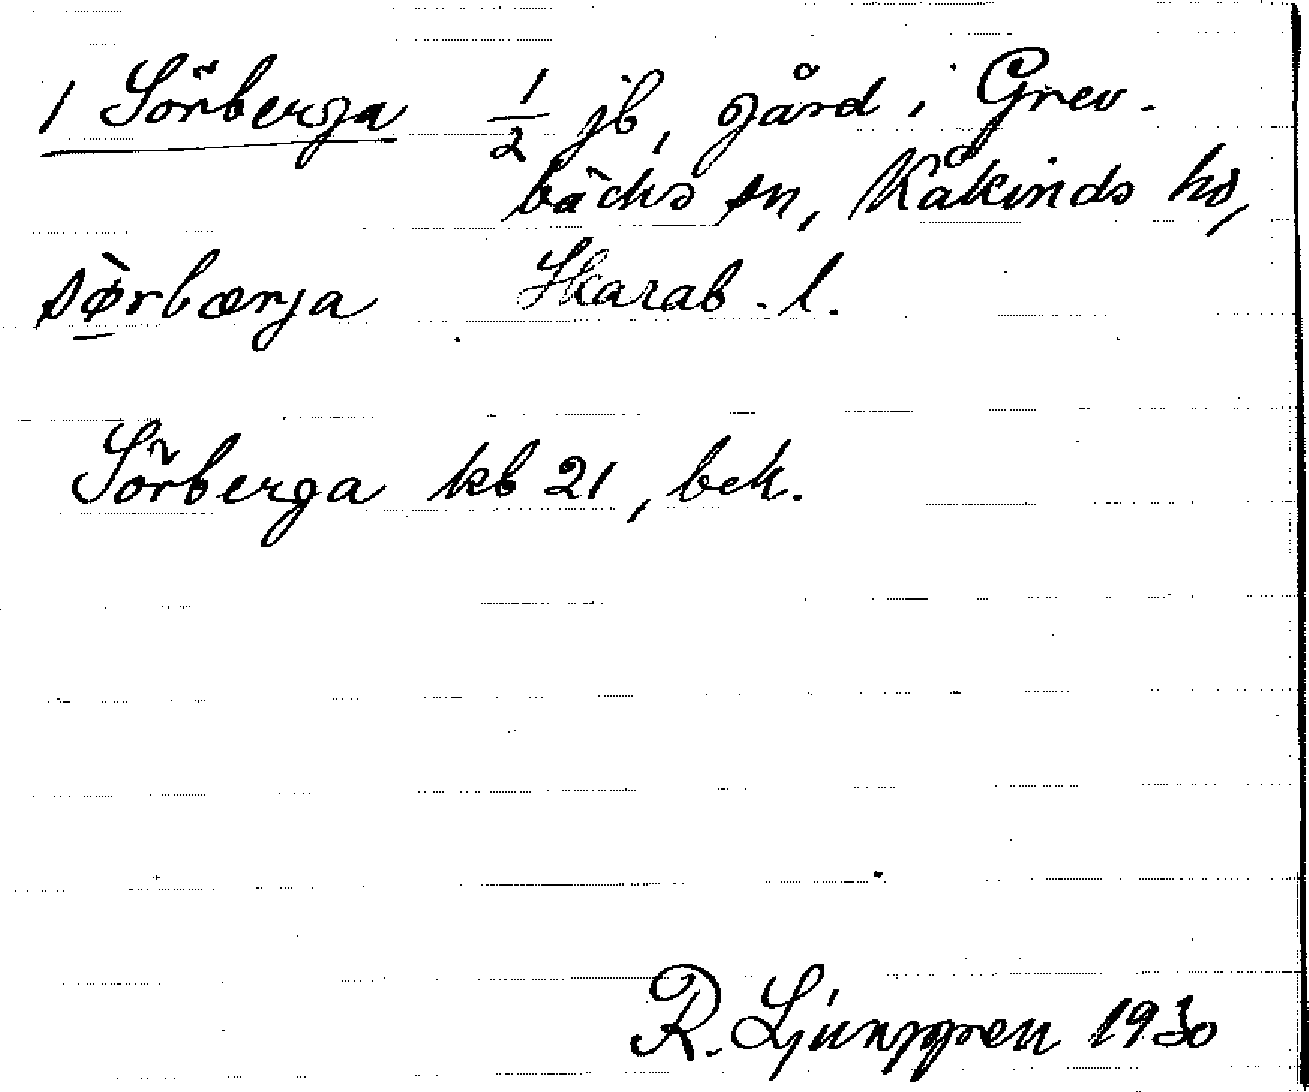 1 Sörberga 1/2 jb, gård i Grev-
bäcks sn, Kåkinds hd,
sø̀rbærja Skarab. l.
Sörberga kb 21, bek.
R. Ljunggren 1930